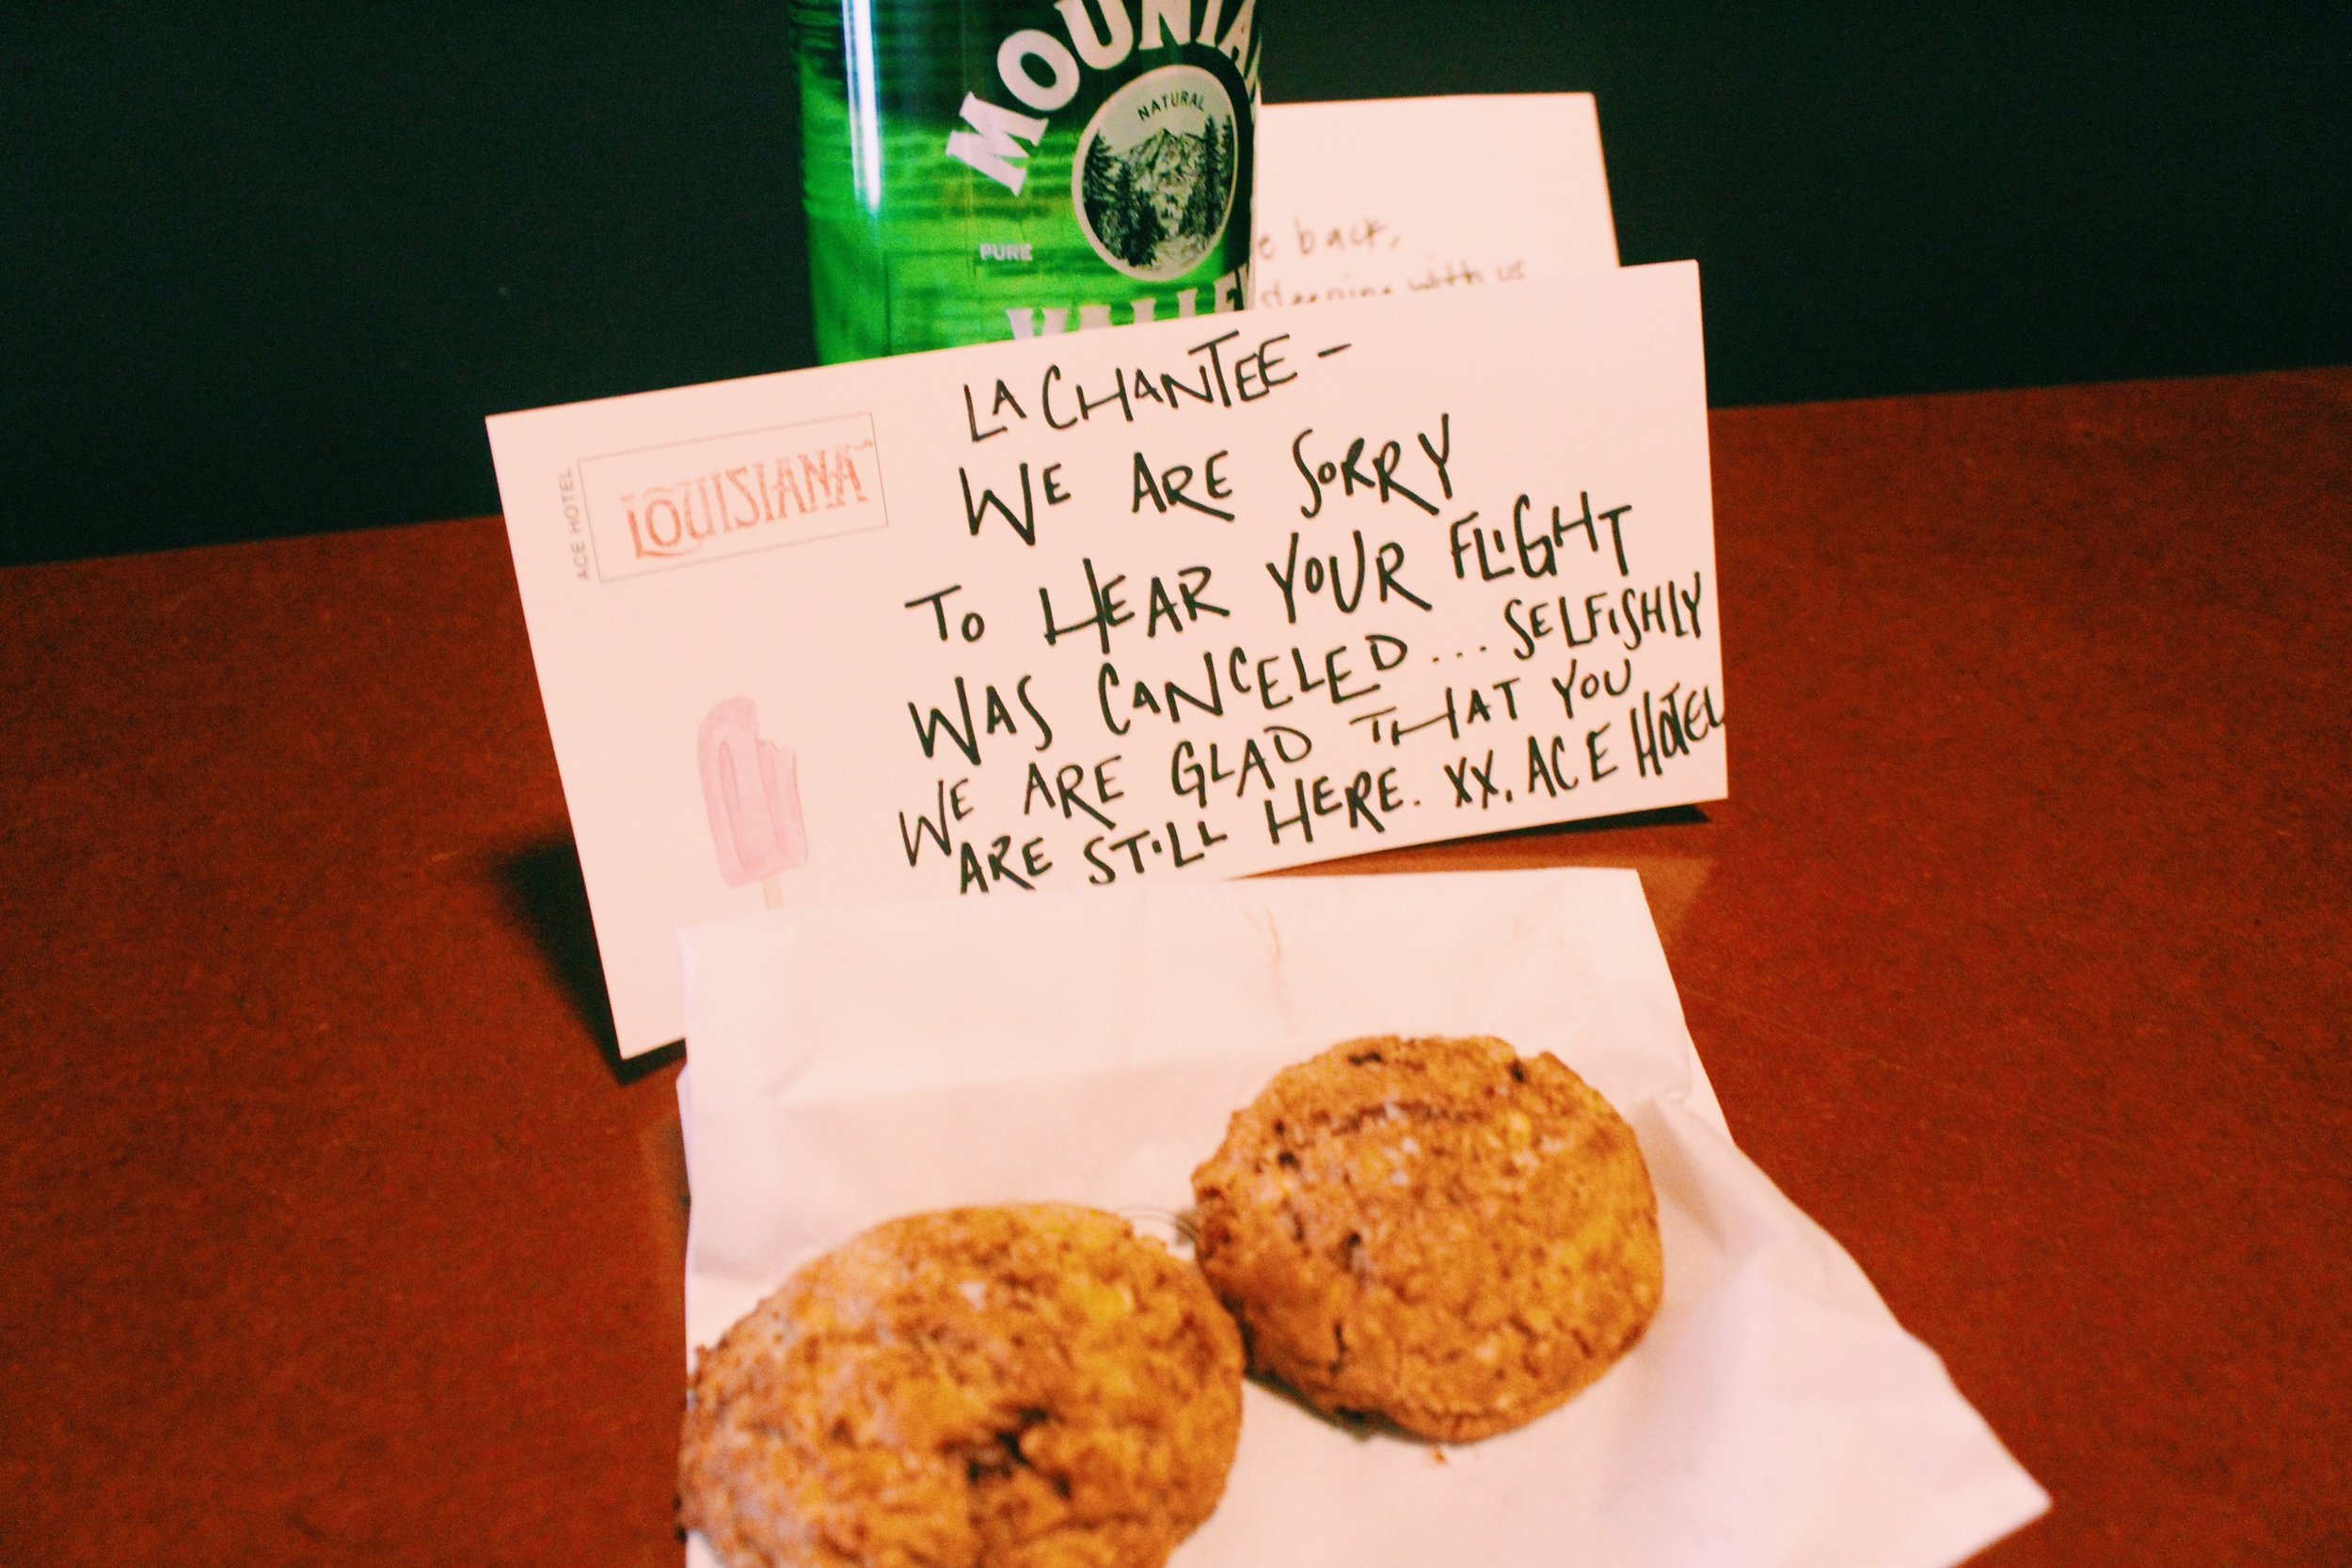 MOUNTAI
NATURAL
PURE
VALLE
back,
with us
ACE HOTEL
LOUISIANA
LACHANTEE –
WE ARE SORRY
TO HEAR YOUR FLIGHT
WAS CANCELED... SELFISHLY
WE ARE GLAD THAT YOU
ARE STILL HERE. XX. ACE HOTEL